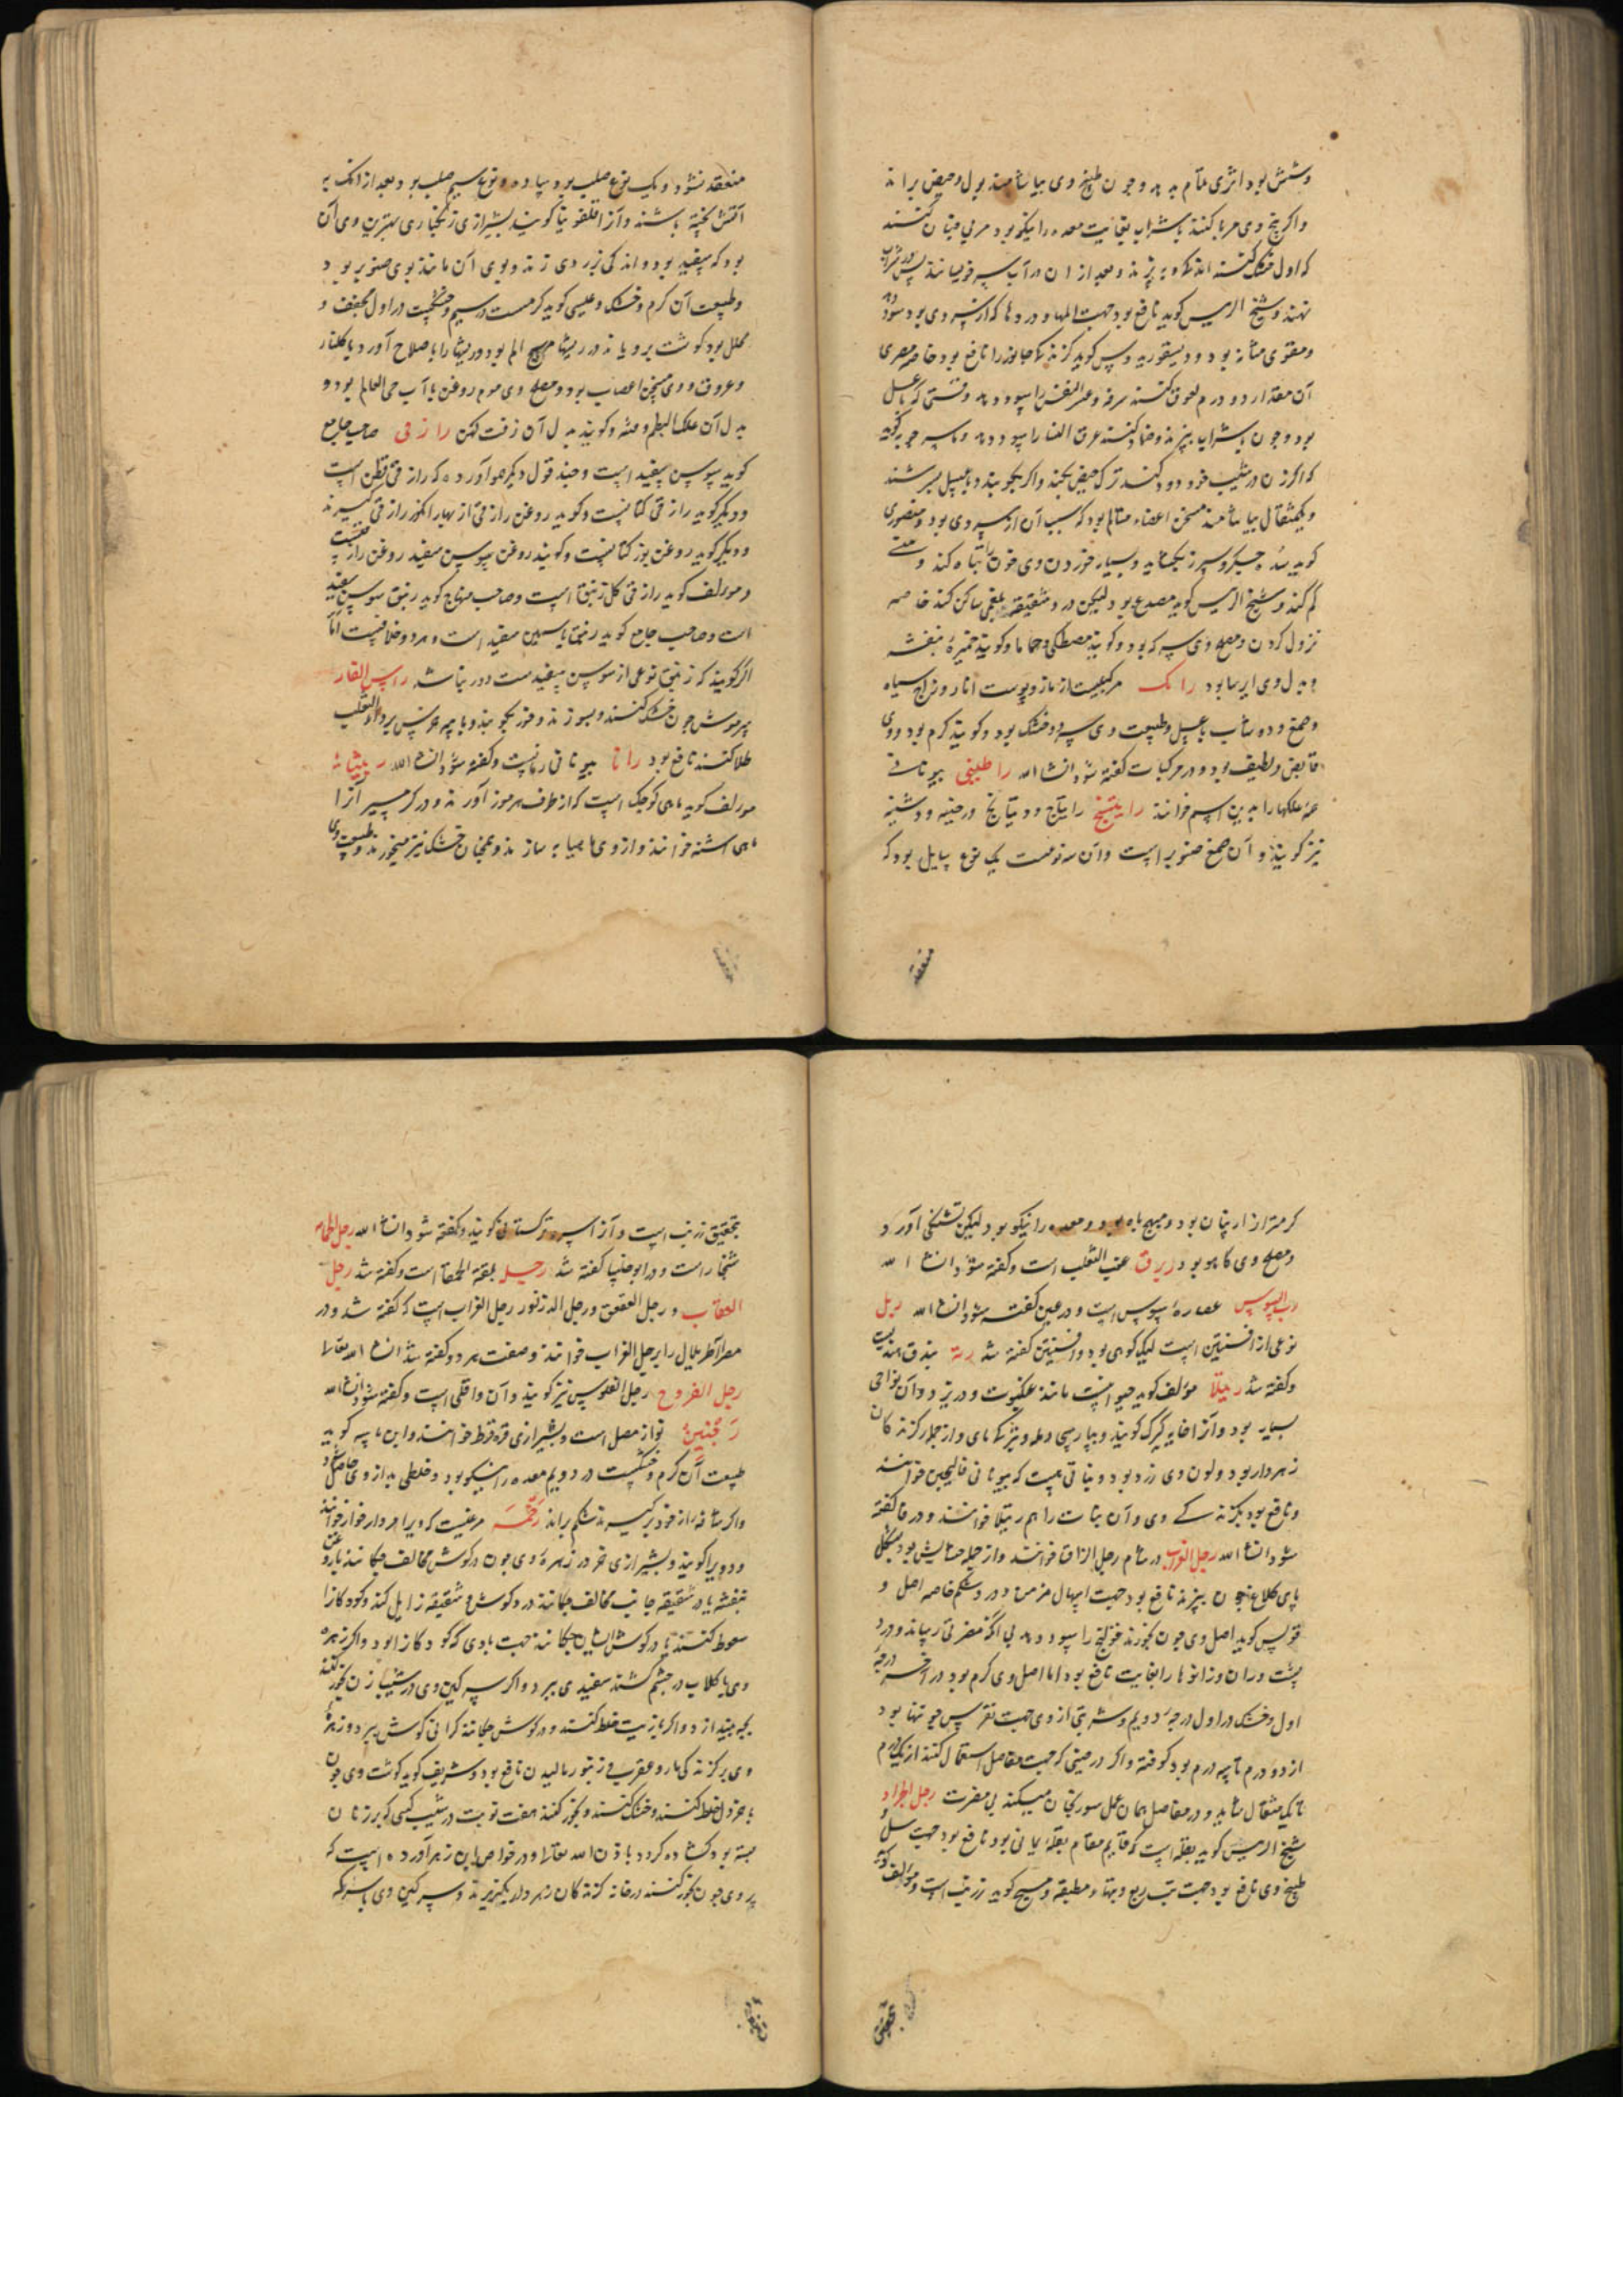 وشش بود اثری تمام بدهد وجون طبیخ وی بیاشامند بول وحیض براند
واکر بیخ وی مربا کنند بشراب بغایت معده را نیکو بود مربی جنان کنند
که اول خشک کنند اندکی و بپزند وبعد از ان در آب سه خویسانند پس در شراب
نهند وشیخ الرییس کوید نافع بود جهت المها و دردها که از سردی بود سود دهد
ومقوی مثانه بود ودیسقوریدوس کوید کزندکی جانوران را نافع بود خاصه مصری
آن مقدار دو درم لعوق کنند سرفه وعسر النفس را سود دهد وقتی که با عسل
بود وجون بشراب بپزند وضماد کنند عرق النسا را سود دهد
که اکر زن در شیب خود دود کند ترک حیض بکند واکر بجوشانند وبا عسل بسرشند
ویکمثقال بیاشامند مسخن اعضاء متالم بود که سبب آن از سردی بود ومنصوری
کوید سده جکر وسپرز بکشاید وبسیار خوردن وی خون را تباه کند ومنی
کم کند وشیخ الرییس کوید مصدع بود لیکن درد شقیقه بلغمی ساکن کند خاصه
نزول کردن ومصلح وی سرکه بود وکویند مصطکی وحماما وکویند خمیره بنفشه
وبدل وی ایرسا بود رامک مرکبیست از مازو وپوست انار وزاج سیاه
وصمغ ودوشاب با عسل وطبیعت وی سرد وخشک بود وکویند کرم بود ووی
قابض ولطیف بود ودر مرکبات کفته شود انشاء الله راطینی بیونانی
همه علکها را بدین اسم خوانند راتینج راتیاج ودتیاتج ورخینه ووشینه
نیز کویند و آن صمغ صنوبر است وآن سه نوعست یک نوع سایل بود که
منعقد نشود ویک نوع صلب بود سیاه ونوع سیم صلب بود وبعد از انک به
آتش پخته باشند وآنرا قلفونیا کویند بشیرازی زنکباری بهترین وی آن
بود که سفید بود واندکی بزردی زند وبوی آن مانند بوی صنوبر بود
وطبیعت آن کرم وخشک وعیسی کوید کرمست در سیم وخشکست در اول مجفف و
محلل بود کوشت برویاند در ریشها مهیج الم بود وریشها را باصلاح آورد با کلنار
وعروق ووی مسخن اعصاب بود ومصلح وی موم روغن با آب حی العالم بود و
بدل آن علک البطم ومثله وکویند بدل آن زفت کهن رازقی صاحب جامع
کوید سوسن سفید است وجند قول دیکر هم آورده که رازقی قطن است
ودیکر کوید رازقی کتانست وکوید روغن رازقی از بهار انکور رازقی کیرند
ودیکر کوید روغن بزر کتانست وکویند روغن سوسن سفید روغن رازقیست
ومولف کوید رازقی کل زنبق است وصاحب منهاج کوید زنبق سوسن سفید
است وصاحب جامع کوید زنبق یاسمین سفید است وهر دو خلافست اما
اکر کویند که زنبق نوعی از سوسن سفیدست دور نباشد راس الفار
سرموش جون خشک کنند وبسوزند وخرد بجوبند وبا پیه خرس بر داء الثعلب
طلا کنند نافع بود رانا بیونانی رمانست وکفته شود انشاء الله ربیثانه
مولف کوید ماهی کوجک است که از طرف هرموز آورند ودر کرمسیر انرا
ماهی اشنه خوانند واز وی ماهیابه سازند وهمجنان خشک نیز میخورند وطبیعت وی
کرمتر از اربیان بود ومهیج باه بود ومعده را نیکو بود لیکن تشنکی آورد
ومصلح وی کاهو بود ربرق عنب الثعلب است وکفته شود انشاء الله
رب السوس عصارهٔ سوس است ودر عین کفته شود انشاء الله ربل
نوعی از افسنتین است لیکن کوهی بود ودر افسنتین کفته شد رته بندق هندیست
وکفته شد رتیلا مولف کوید حیوانیست مانند عنکبوت ودر یزد وآن نواحی
بسیار بود وآنرا خایه کیرک کویند وبپارسی دلمه ونیز نکهای واز جمله کزندکان
زهردار بود ولون وی زرد بود ونباتی هست که بیونانی فالنجیس خوانند
ونافع بود بکزندکی وی وآن نبات را هم رتیلا خوانند ودر فا کفته
شود انشاء الله رجل الغراب در شام رجل الزاغ خوانند واز جمله حشایش بود بشکل
پای کلاغ جون بپزند نافع بود جهت اسهال مزمن ودرد شکم خاصه اصل و
قولس کوید اصل وی جون بخورند قولنج را سود دهد بی آنکه مضرتی رساند ودرد
پشت وران وزانوها را بغایت نافع بود اما اصل وی کرم بود در آخر درجه
اول وخشک در اول درجهٔ دویم وشربتی از وی جهت نقرس جو تنها بود
از دو درم تا سه درم بود کوفته واکر در حینی که جهت مفاصل استعمال کنند از یک درم
تا یک مثقال شاید ودر مفاصل همان عمل سورنجان میکند بی مضرت رجل الجراد
شیخ الرییس کوید بقله است که قایم مقام بقله یمانی بود نافع بود جهت سل و
طبیخ وی نافع بود جهت تب ربع وتبهاء مطبقه ومسیح کوید زرنب است ومولف کوید
بتحقیق زرنب است وآنرا سرو ترکستانی کویند وکفته شود انشاء الله رجل الحمام
شنجار است ودر ابو خلسا کفته شد رجله بقلة الحمقا است وکفته شد رجل
العقاب ورجل العقعق ورجل الزرزور رجل الغراب است که کفته شد ودر
مصر اطریلال را رجل الغراب خوانند وصفت هر دو کفته شد انشاء الله تعالی
رجل الفروج رجل الفلوس نیز کویند وآن واقلی است وکفته شود انشاء الله
رخبین نوازمصل است وبشیرازی قره قرط خوانند وابن ماسه کوید
طبیعت آن کرم وخشکست در دویم معده را نیکو بود وخلطی بد از وی حاصل شود
واکر شافه از خود برکیرند شکم براند رخمه مرغیست که ویرا مردار خوار خوانند
ودویرا کویند وبشیرازی خر در زهرهٔ وی جون در کوش مخالف جکانند با روغن
بنفشه یا در شقیقه جانب مخالف جکانند درد کوش وشقیقه زایل کند وکودکانرا
سعوط کنند یا در کوش ایشان جکانند جهت بادی که کودکانرا بود واکر زهره
وی با کلاب در جشم کشند سفیدی ببرد واکر سرکین وی در شیب زن بخور کنند
بچه بیندازد واکر با زیت خلط کنند ودر کوش جکانند کرانی کوش ببرد وزهرهٔ
وی بر کزندکی مار وعقرب وزنبور مالیدن نافع بود وشریف کوید کوشت وی جون
با خردل خلط کنند وخشک کنند وبخور کنند هفت نوبت در شیب کسی که بر زنان
بسته بود کشاده کردد باذن الله تعالی ودر خواص ابن زهر آورده است که
پر وی جون بخور کنند در خانه کزندکان زهردار بکریزند وسرکین وی با سرکه